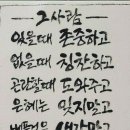 그사람
있을때 존중하고
없을때 칭찬하고
곤란할때 도와주고
은혜는 잊지말고
베푼것은 생각말고